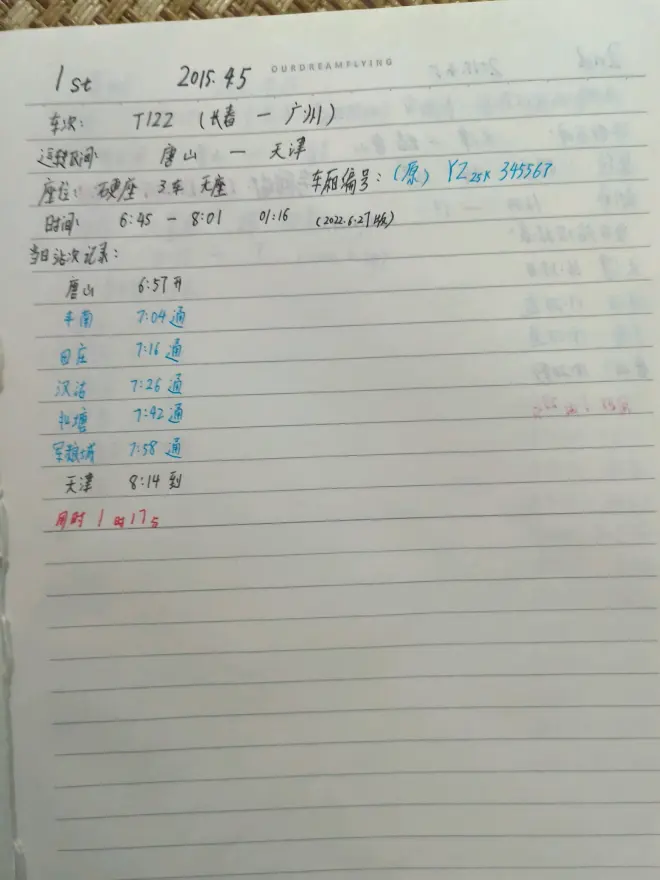 OURDREAMFLYING
1st 2015.4.5
车次: T122 (长春 — 广州)
运转区间: 唐山 — 天津
座位: 硬座, 3车 无座 车厢编号: (原) YZ25K 345567
时间: 6:45 — 8:01 01:16 (2022.6.27改)
当日站次记录:
唐山 6:57开
丰南 7:04 通
田庄 7:16 通
汉沽 7:26 通
北塘 7:42 通
军粮城 7:58 通
天津 8:14 到
用时 1时17分